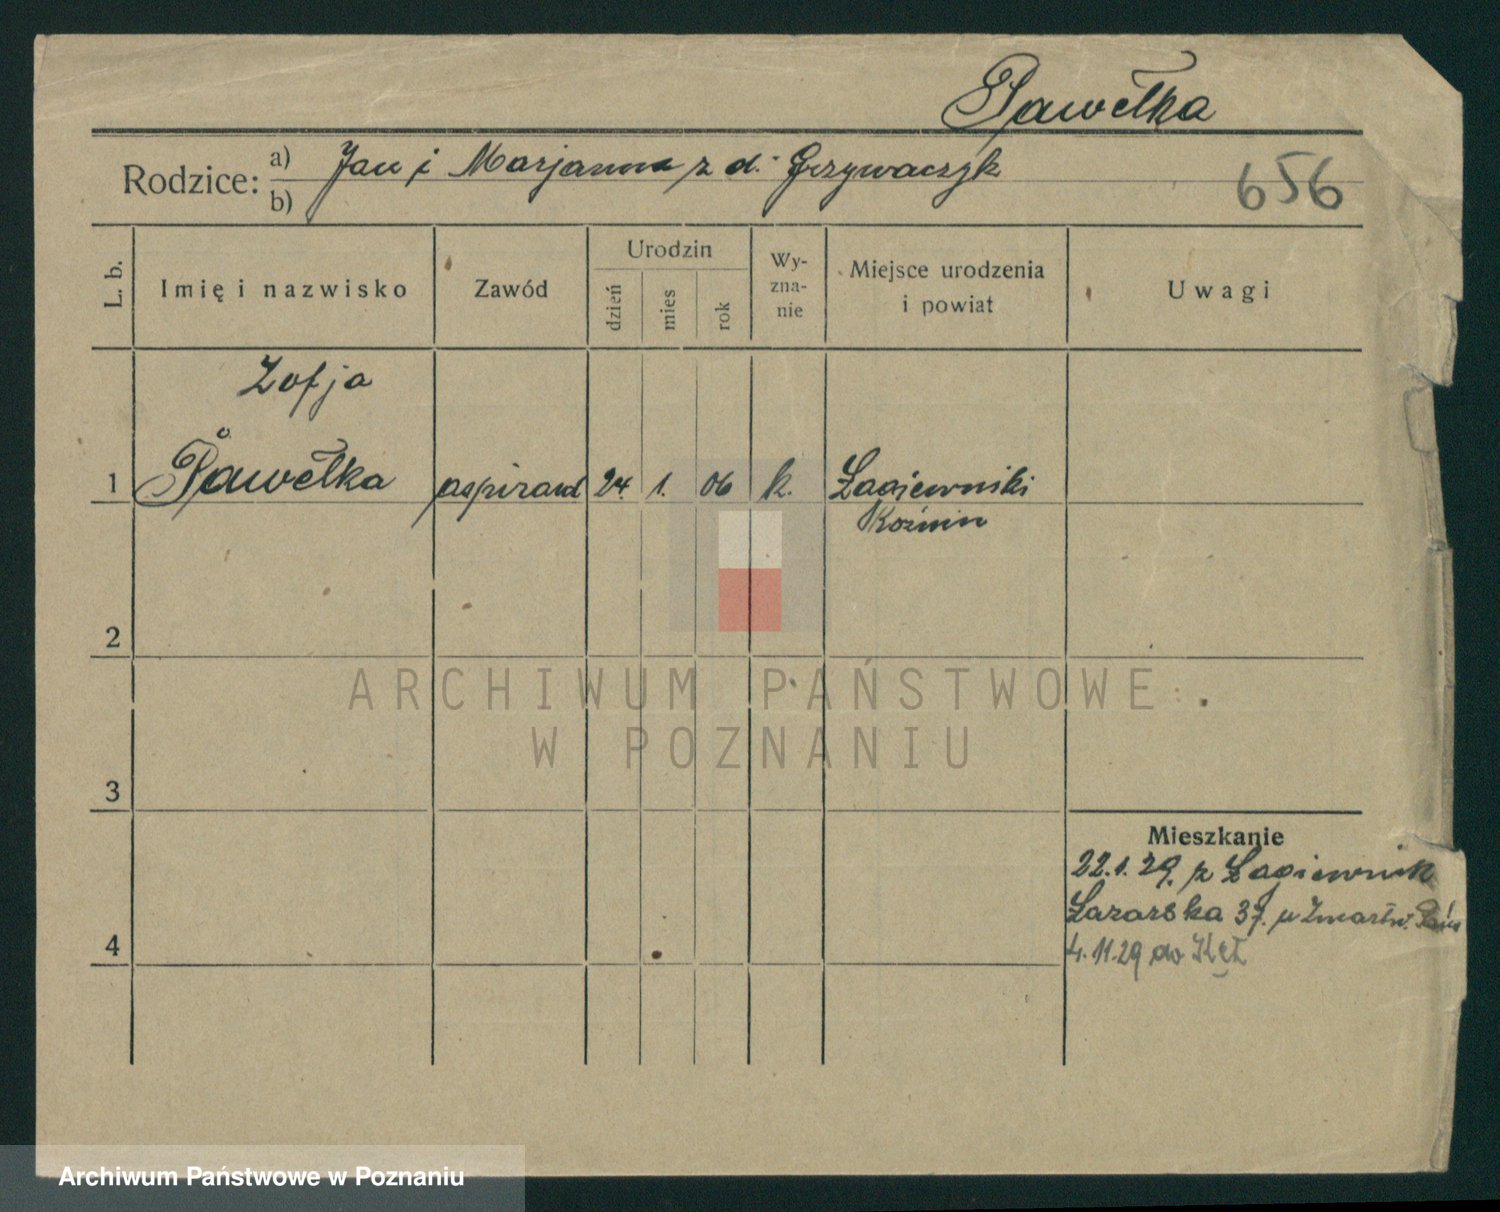 Pawełka
Rodzice: a) Jan i Marjanna z d. Grzywaczyk
b)
656
L. b.
Imię i nazwisko
Zawód
Urodzin
dzień
mies
rok
Wy-
zna-
nie
Miejsce urodzenia
i powiat
Uwagi
Zofja
1 Pawełka aspirand 24. 1. 06 k. Łagiewniki
Koźmin
2
3
4
Mieszkanie
22.1.29. z Łagiewnik
Łazarska 37. u Zmartw. Pańs
4.11.29 do Kęt
ARCHIWUM PAŃSTWOWE
W POZNANIU
Archiwum Państwowe w Poznaniu